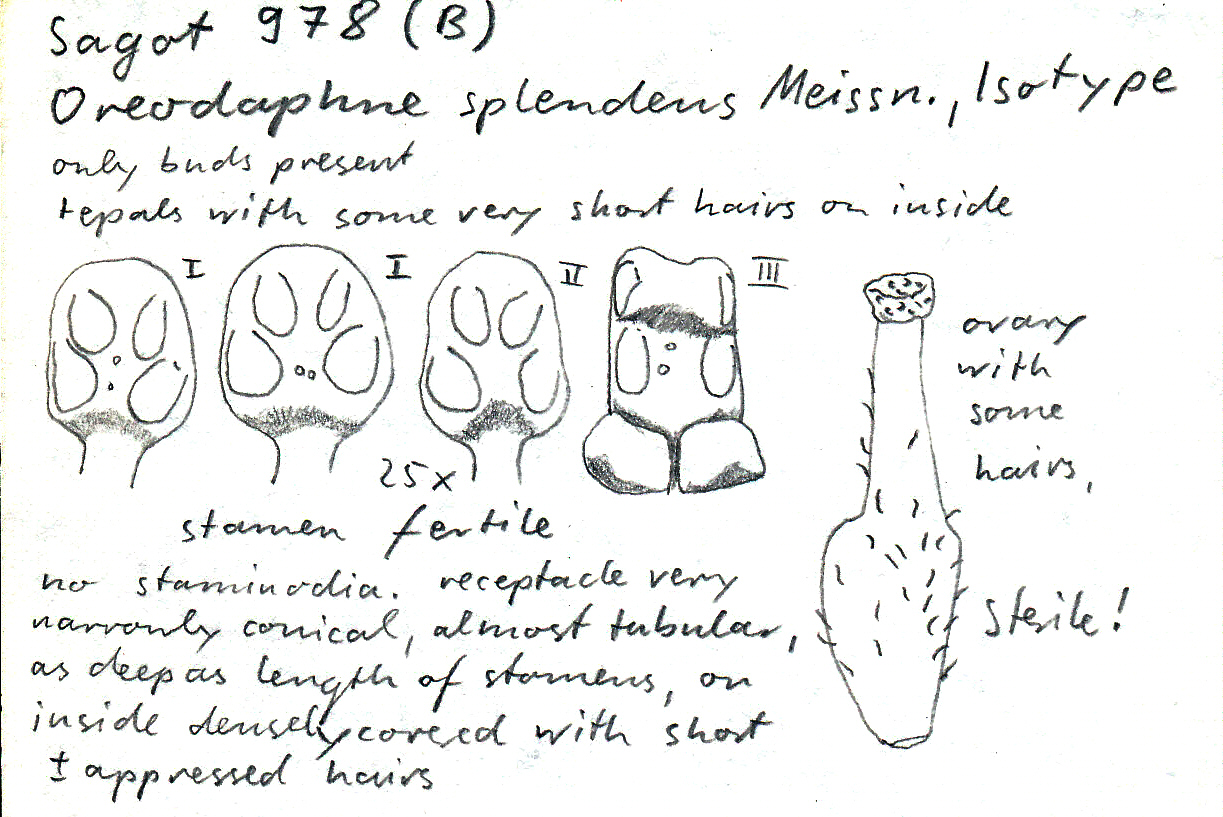 Sagot 978 (B)
Oreodaphne splendens Meissn., Isotype
only buds present
tepals with some very short hairs on inside
I
I
II
III
25x
stamen fertile
ovary
with
some
hairs,
sterile!
no staminodia. receptacle very
narrowly conical, almost tubular,
as deep as length of stamens, on
inside densely covered with short
± appressed hairs